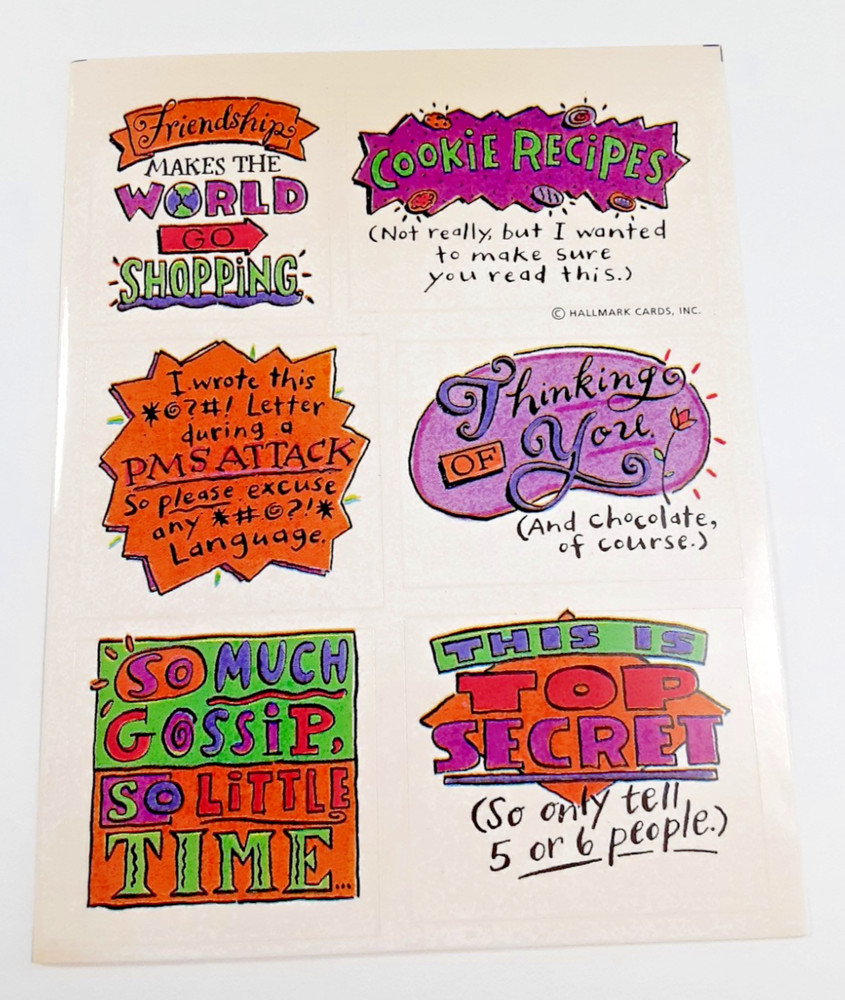 Friendship
MAKES THE
WORLD
GO
SHOPPING
COOKIE RECIPES
(Not really, but I wanted
to make sure
you read this.)
© HALLMARK CARDS, INC.
I wrote this
*@?#! Letter
during a
PMS ATTACK
So please excuse
any *#@?!*
Language.
Thinking
OF You
(And chocolate,
of course.)
SO MUCH
GOSSIP,
SO LITTLE
TIME...
THIS IS
TOP
SECRET
(So only tell
5 or 6 people.)